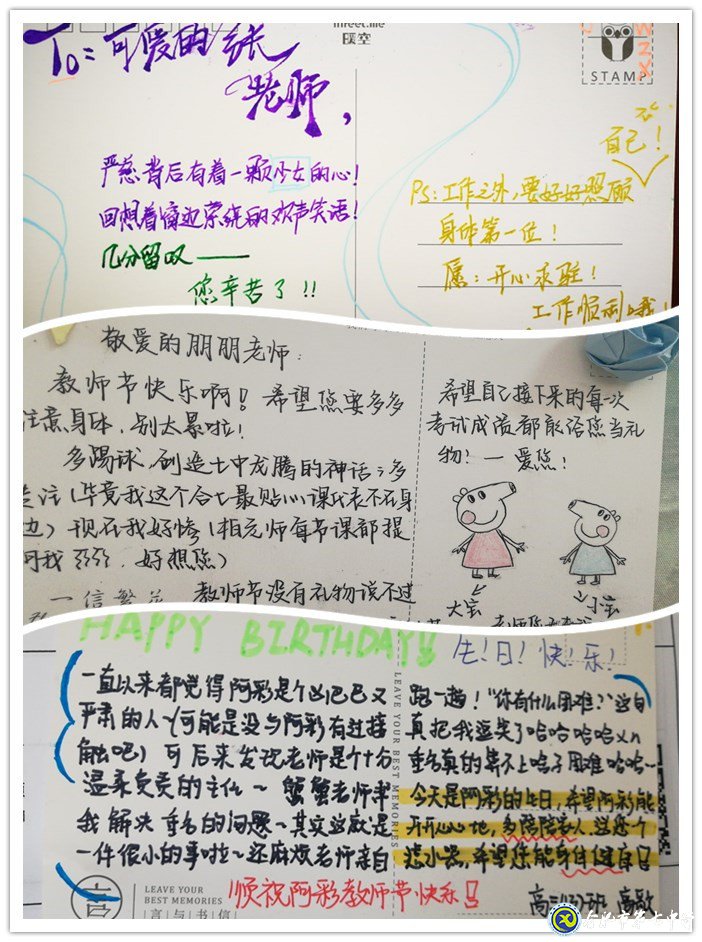 璞空
STAMP
To: 可爱的张
老师,
严慈背后有着一颗少女的心!
回想着窗边亲统的欢声笑语!
几分留叹——
您辛苦了!!
自己!
PS:工作之外,要好好照顾
身体第一位!
愿:开心永驻!
工作顺利哦!
敬爱的朋朋老师:
教师节快乐啊!希望您要多多
注意身体,别太累啦!
多踢球,创造七中龙腾的神话;多
关注(毕竟我这个合七最贴心课代表不在身
边)现在我好惨(相元师每节课都提
问我 ,好想您)
教师节没有礼物说不过
希望自己接下来的每一次
考试成绩都能给您当礼
物!—爱您!
大宝
小宝
HAPPY BIRTHDAY!!
生!日!快!乐!
一直以来都觉得阿彩是个凶巴巴又
严肃的人~(可能是没与阿彩有过接
触吧)可后来发现老师是个十分
温柔负责的主任~蟹蟹老师帮
我解决重名的问题~其实这就是
一件很小的事啦~还麻烦老师亲自
跑一趟!"你有什么困难?"这句
真把我逗笑了哈哈哈哈xn
重名真的算不上啥子困难哈哈~
今天是阿彩的生日,希望阿彩能
开开心心地,多陪陪家人
希望您能身自健康!
顺祝阿彩教师节快乐!
LEAVE YOUR BEST MEMORIES
LEAVE YOUR
BEST MEMORIES
言与书信
合肥市第七中学